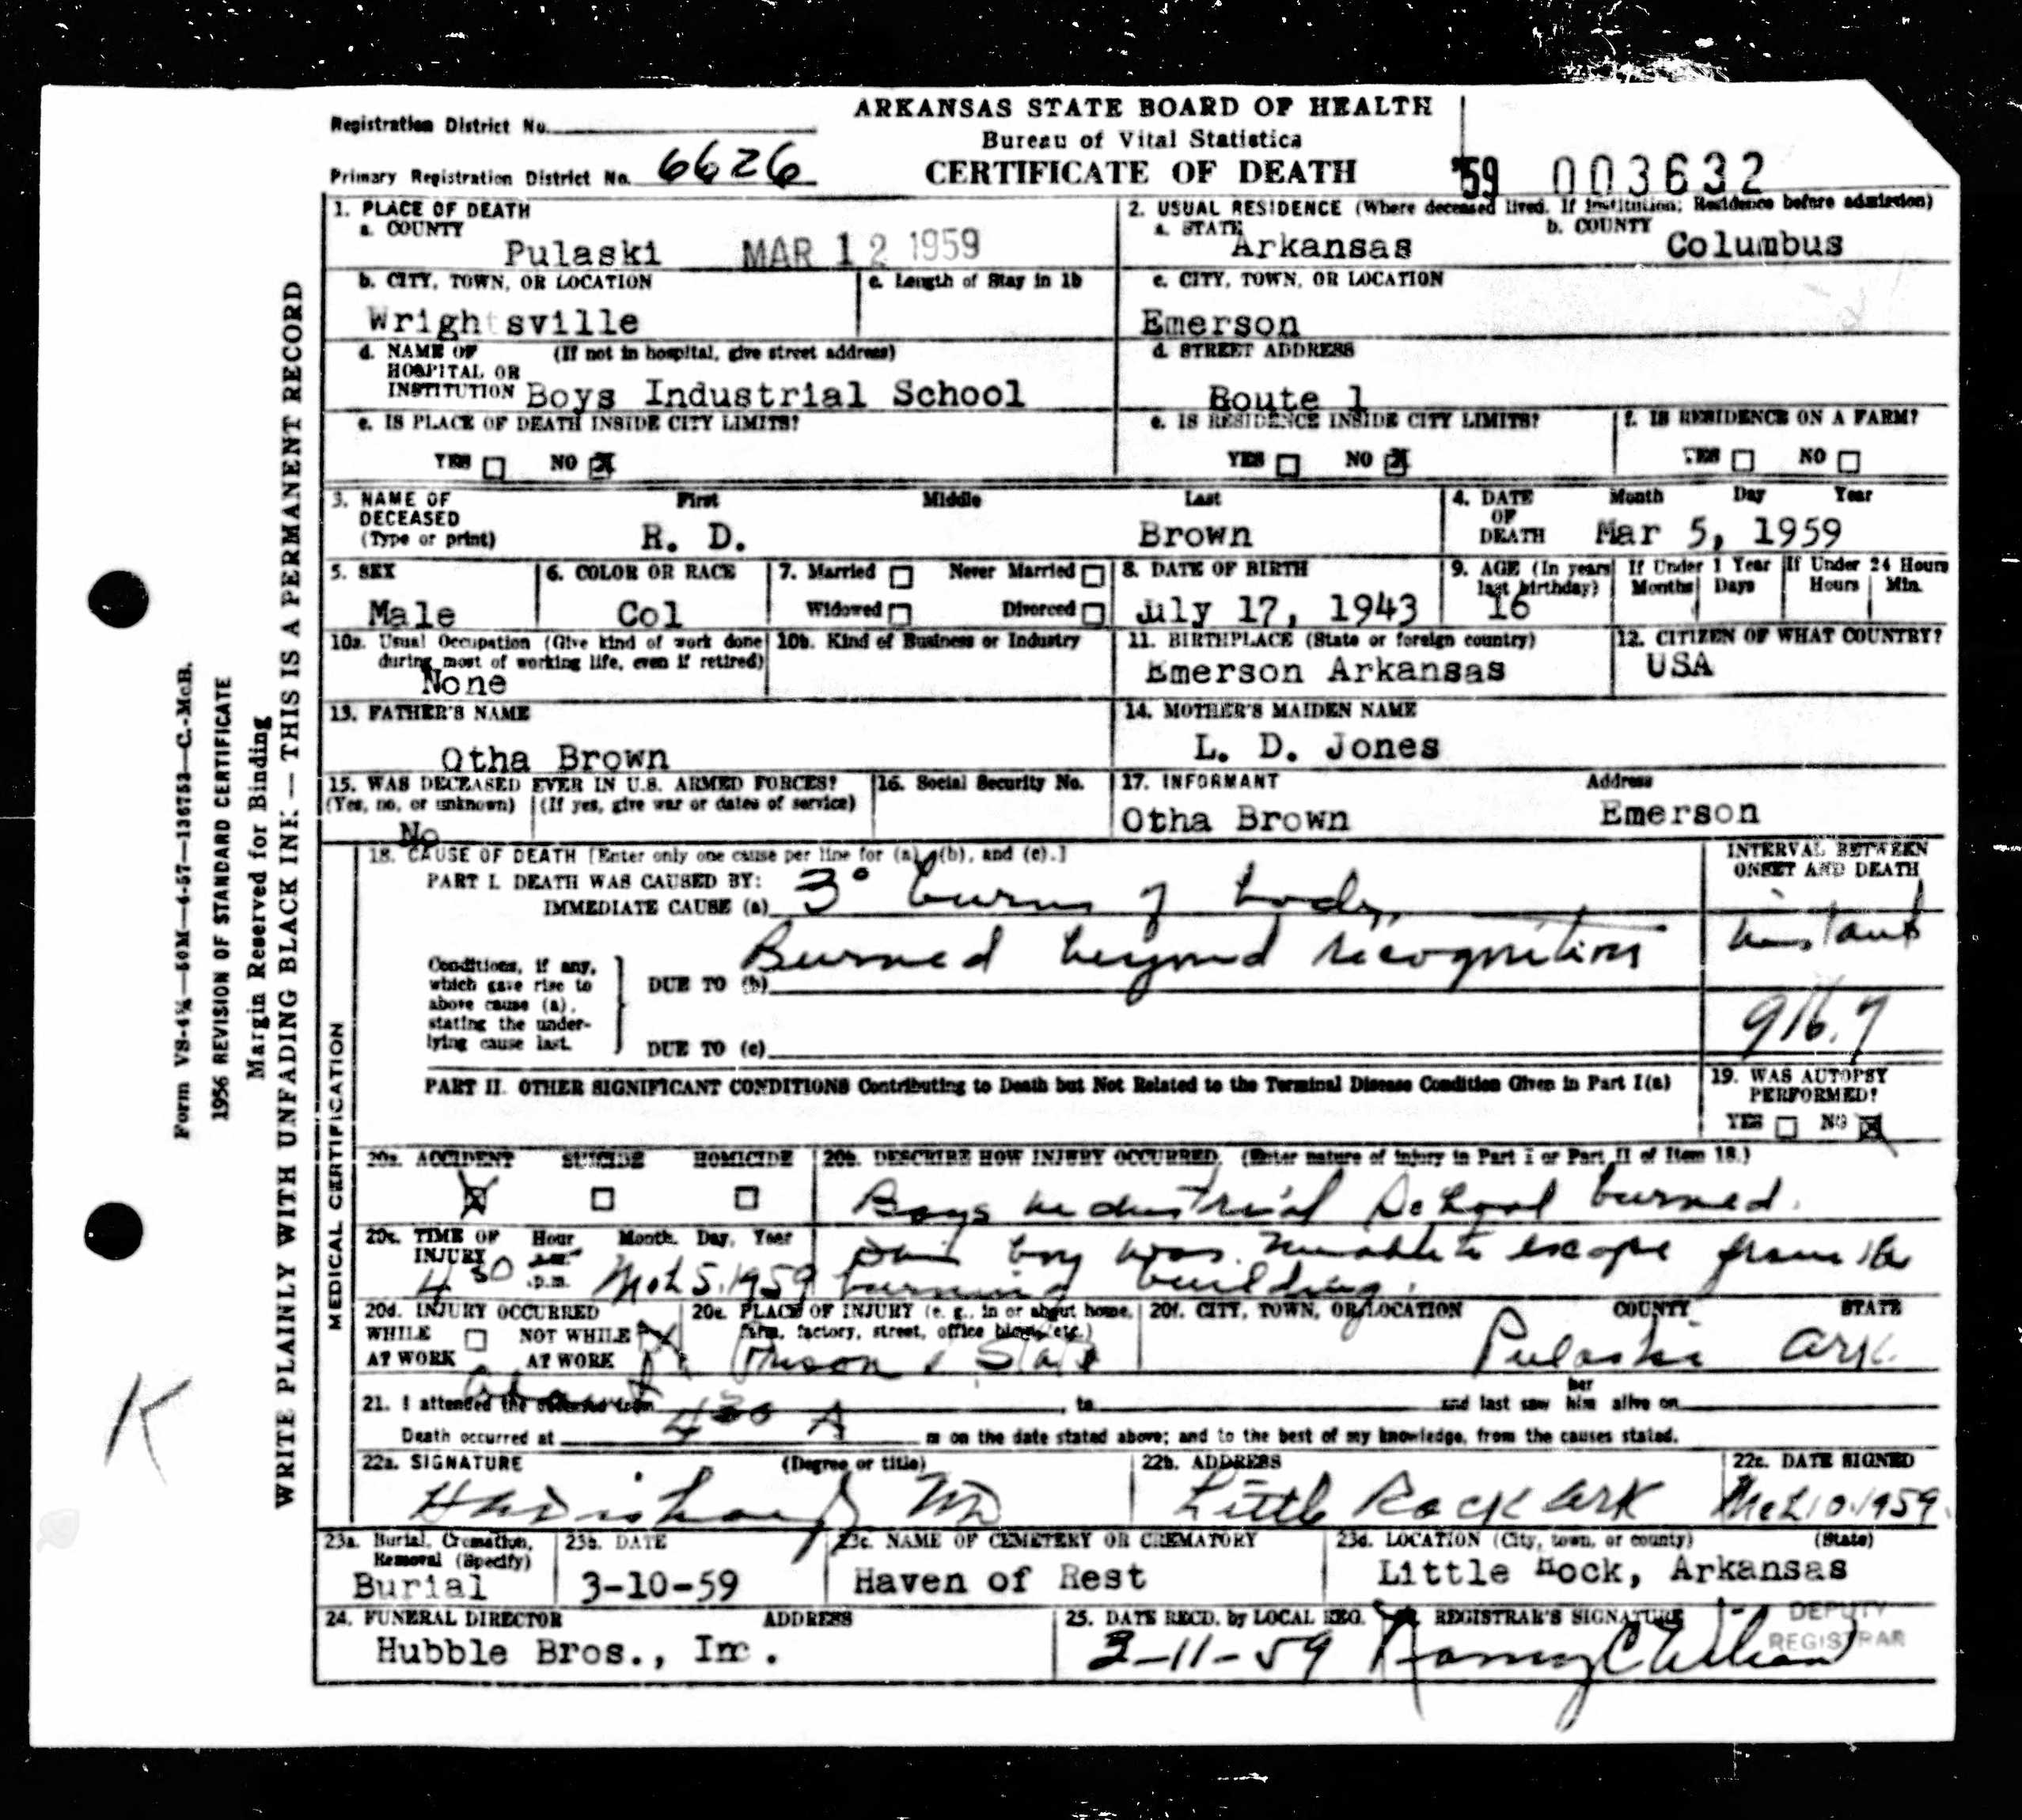 ARKANSAS STATE BOARD OF HEALTH
Bureau of Vital Statistics
CERTIFICATE OF DEATH
Registration District No.
Primary Registration District No. 6626
'59 003632
1. PLACE OF DEATH
a. COUNTY
Pulaski MAR 12 1959
2. USUAL RESIDENCE (Where deceased lived. If institution: Residence before admission)
a. STATE Arkansas b. COUNTY Columbus
b. CITY, TOWN, OR LOCATION
Wrightsville
c. Length of Stay in 1b
c. CITY, TOWN, OR LOCATION
Emerson
d. NAME OF HOSPITAL OR INSTITUTION (If not in hospital, give street address)
Boys Industrial School
d. STREET ADDRESS
Route 1
e. IS PLACE OF DEATH INSIDE CITY LIMITS?
YES NO X
e. IS RESIDENCE INSIDE CITY LIMITS?
YES NO X
f. IS RESIDENCE ON A FARM?
YES NO
3. NAME OF DECEASED (Type or print)
First Middle Last
R. D. Brown
4. DATE OF DEATH Month Day Year
Mar 5, 1959
5. SEX
Male
6. COLOR OR RACE
Col
7. Married Never Married
Widowed Divorced
8. DATE OF BIRTH
July 17, 1943
9. AGE (In years last birthday)
16
If Under 1 Year
Months Days
If Under 24 Hours
Hours Min.
10a. Usual Occupation (Give kind of work done during most of working life, even if retired)
None
10b. Kind of Business or Industry
11. BIRTHPLACE (State or foreign country)
Emerson Arkansas
12. CITIZEN OF WHAT COUNTRY?
USA
13. FATHER'S NAME
Otha Brown
14. MOTHER'S MAIDEN NAME
L. D. Jones
15. WAS DECEASED EVER IN U.S. ARMED FORCES?
(Yes, no, or unknown) (If yes, give war or dates of service)
No
16. Social Security No.
17. INFORMANT Address
Otha Brown Emerson
18. CAUSE OF DEATH [Enter only one cause per line for (a), (b), and (c).]
PART I. DEATH WAS CAUSED BY:
IMMEDIATE CAUSE (a) 3° burns of body,
INTERVAL BETWEEN ONSET AND DEATH
instant
Conditions, if any, which gave rise to above cause (a), stating the underlying cause last.
DUE TO (b) Burned beyond recognition
DUE TO (c)
916.7
PART II. OTHER SIGNIFICANT CONDITIONS Contributing to Death but Not Related to the Terminal Disease Condition Given in Part I(a)
19. WAS AUTOPSY PERFORMED?
YES NO X
20a. ACCIDENT SUICIDE HOMICIDE
X
20b. DESCRIBE HOW INJURY OCCURRED. (Enter nature of injury in Part I or Part II of Item 18.)
Boys industrial School burned.
Said boy was unable to escape from the
burning building.
20c. TIME OF INJURY Hour Month, Day, Year
4 30 a.m. p.m. Mch 5. 1959
20d. INJURY OCCURRED
WHILE AT WORK NOT WHILE AT WORK X
20e. PLACE OF INJURY (e. g., in or about home, farm, factory, street, office bldg., etc.)
Prison State
20f. CITY, TOWN, OR LOCATION COUNTY STATE
Pulaski Ark.
21. I attended the deceased from , to and last saw her him alive on
Death occurred at 4 30 A m on the date stated above; and to the best of my knowledge, from the causes stated.
22a. SIGNATURE (Degree or title)
22b. ADDRESS
Little Rock Ark
22c. DATE SIGNED
Mch 10. 1959.
23a. Burial, Cremation, Removal (Specify)
Burial
23b. DATE
3-10-59
23c. NAME OF CEMETERY OR CREMATORY
Haven of Rest
23d. LOCATION (City, town, or county) (State)
Little Rock, Arkansas
24. FUNERAL DIRECTOR ADDRESS
Hubble Bros., Inc.
25. DATE RECD. by LOCAL REG.
3-11-59
REGISTRAR'S SIGNATURE
DEPUTY
REGISTRAR
MEDICAL CERTIFICATION
WRITE PLAINLY WITH UNFADING BLACK INK — THIS IS A PERMANENT RECORD
Margin Reserved for Binding
1956 REVISION OF STANDARD CERTIFICATE
Form VS-4½—50M—4-57—136753—C.-McB.
K